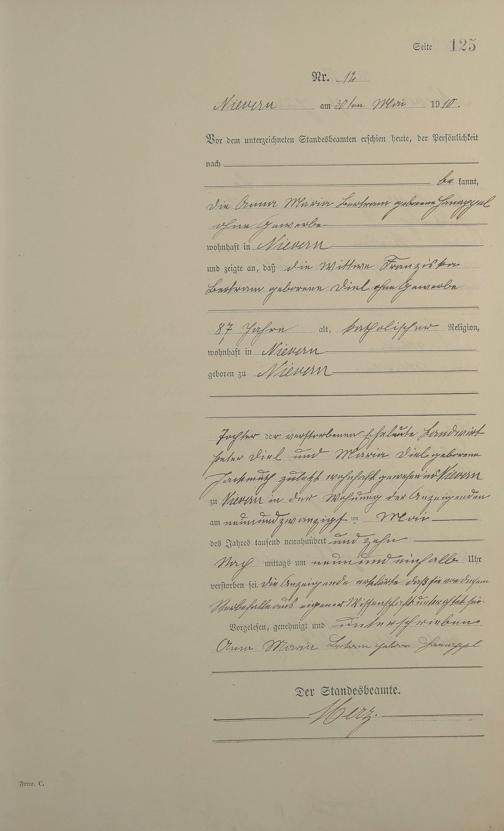 Seite 125
Nr. 12
Nievern am 30ten Mai 1910.
Vor dem unterzeichneten Standesbeamten erschien heute, der Persönlichkeit
nach
be kannt,
die Anna Maria Bertram geborene
ohne Gewerbe
wohnhaft in Nievern
und zeigte an, daß die Wittwe Franziska
Bertram geborene Diel ohne Gewerbe
87 Jahre alt, katholischer Religion,
wohnhaft in Nievern
geboren zu Nievern
Tochter der verstorbenen Eheleute Landwirt
Peter Diel und Maria Diel geborene
zuletzt wohnhaft gewesen in Nievern
zu Nievern in der Wohnung der Anzeigenden
am neunundzwanzigsten Mai
des Jahres tausend neunhundert und zehn
Nach mittags um neun und einhalb Uhr
verstorben sei. Die Anzeigende erklärte, daß sie von dem
Sterbefalle aus eigener Wissenschaft unterrichtet sei.
Vorgelesen, genehmigt und unterschrieben
Anna Maria Bertram
Der Standesbeamte.
Merz.
Form. C.